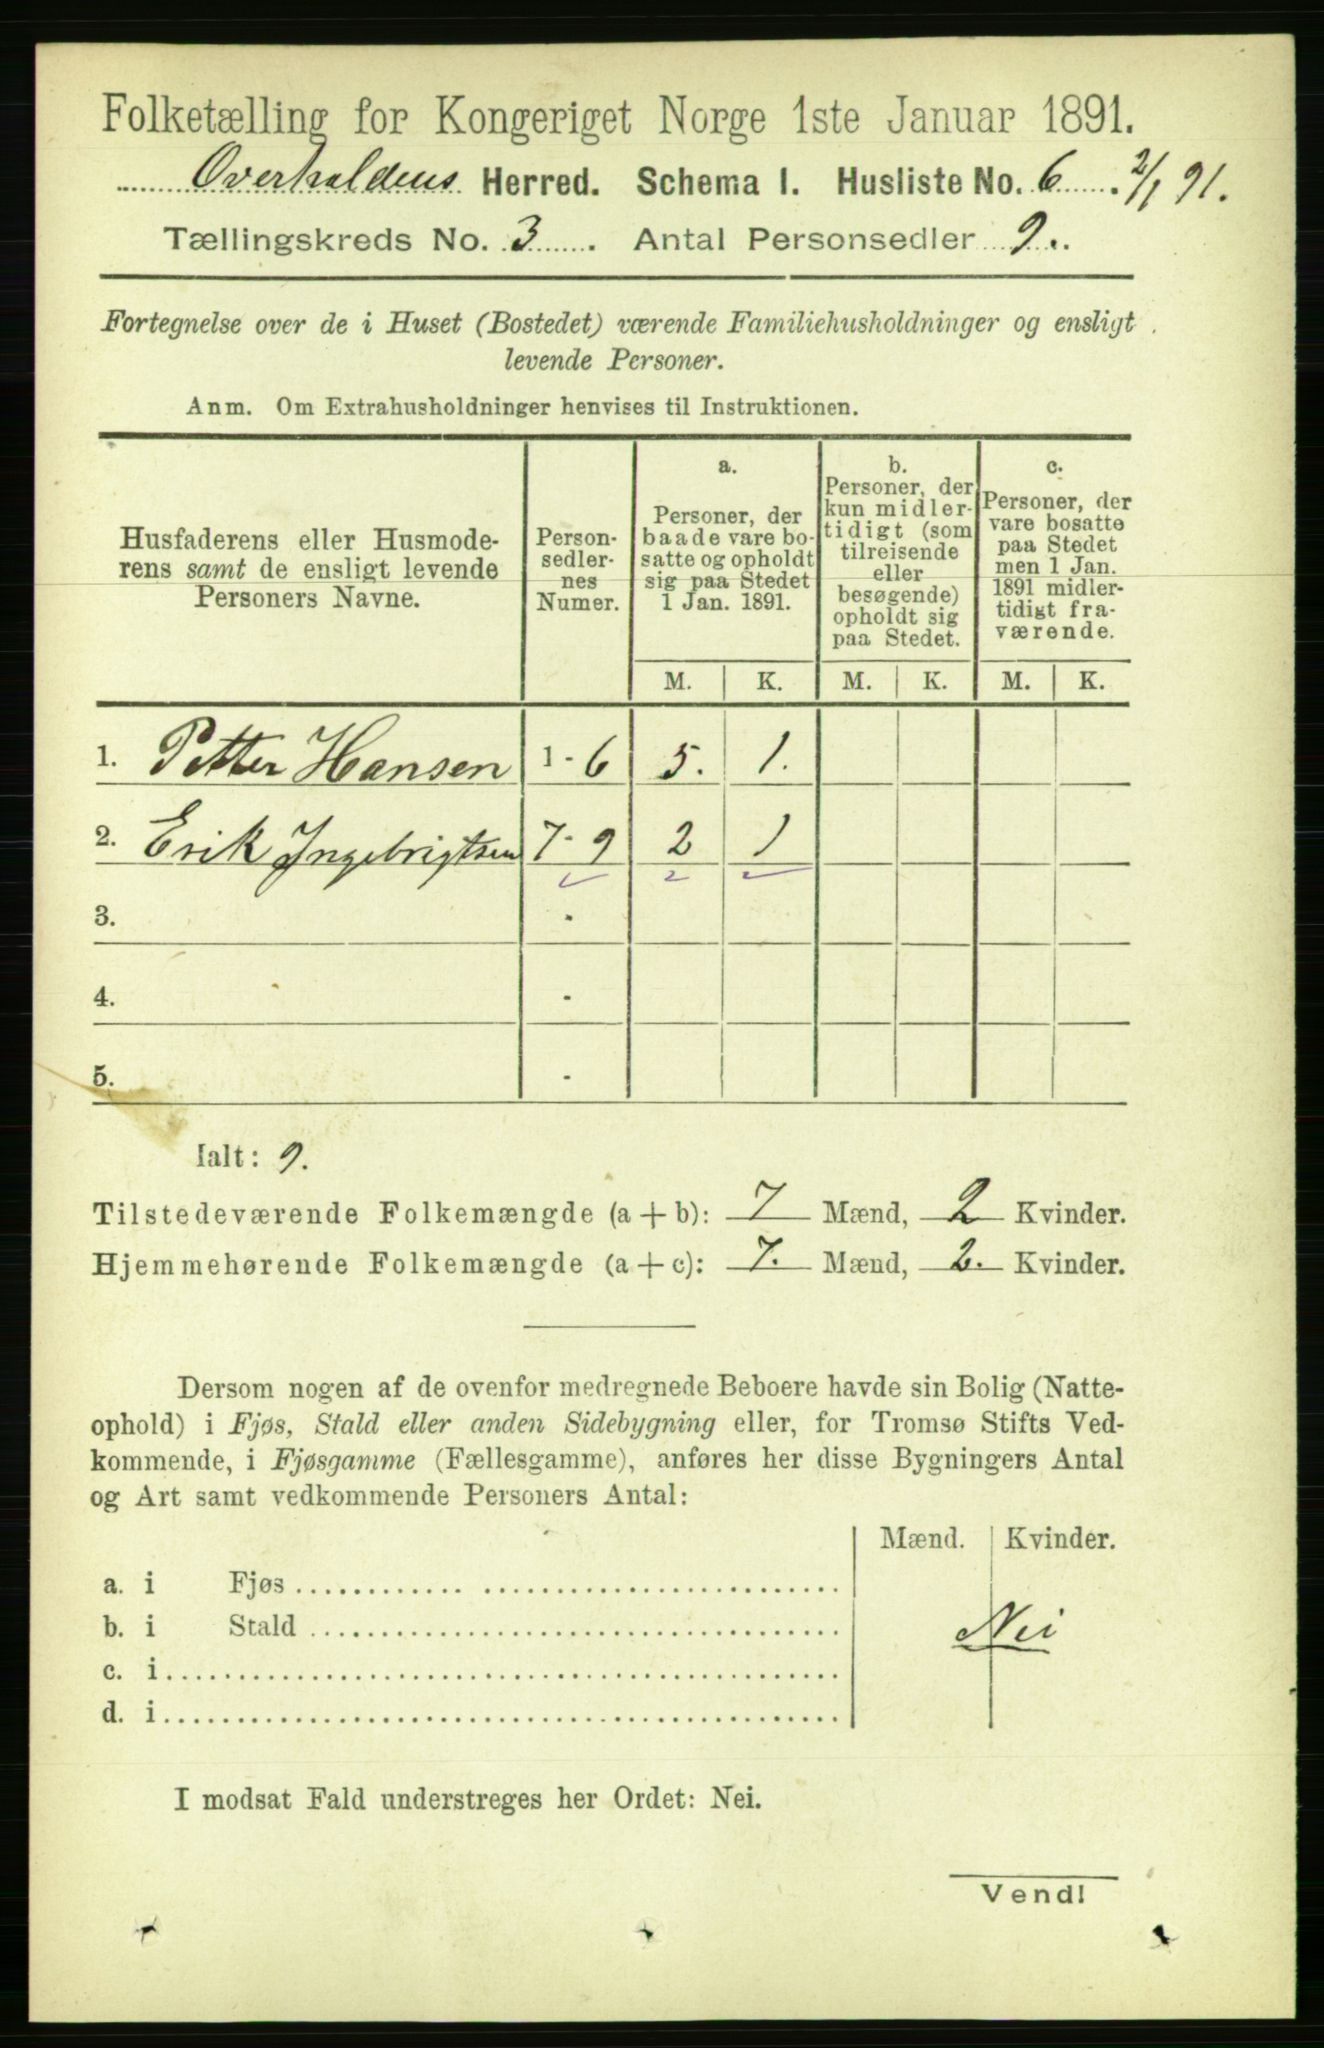 Folketælling for Kongeriget Norge 1ste Januar 1891.
Overhaldens Herred. Schema I. Husliste No. 6. 2/1 91.
Tællingskreds No. 3. Antal Personsedler 9.
Fortegnelse over de i Huset (Bostedet) værende Familiehusholdninger og ensligt
levende Personer.
Anm. Om Extrahusholdninger henvises til Instruktionen.
Husfaderens eller Husmode-
rens samt de ensligt levende
Personers Navne.
Person-
sedler-
nes
Numer.
a.
Personer, der
baade vare bo-
satte og opholdt
sig paa Stedet
1 Jan. 1891.
b.
Personer, der
kun midler-
tidigt (som
tilreisende
eller
besøgende)
opholdt sig
paa Stedet.
c.
Personer, der
vare bosatte
paa Stedet
men 1 Jan.
1891 midler-
tidigt fra-
værende.
M. K. M. K. M. K.
1. Petter Hansen 1 - 6 5. 1.
2. Erik Ingebrigtsen 7 - 9 2 1
3. -
4. -
5. -
Ialt: 9.
Tilstedeværende Folkemængde (a + b): 7 Mænd, 2 Kvinder.
Hjemmehørende Folkemængde (a + c): 7. Mænd, 2. Kvinder.
Dersom nogen af de ovenfor medregnede Beboere havde sin Bolig (Natte-
ophold) i Fjøs, Stald eller anden Sidebygning eller, for Tromsø Stifts Ved-
kommende, i Fjøsgamme (Fællesgamme), anføres her disse Bygningers Antal
og Art samt vedkommende Personers Antal:
Mænd. Kvinder.
a. i Fjøs
b. i Stald Nei
c. i
d. i
I modsat Fald understreges her Ordet: Nei.
Vend!